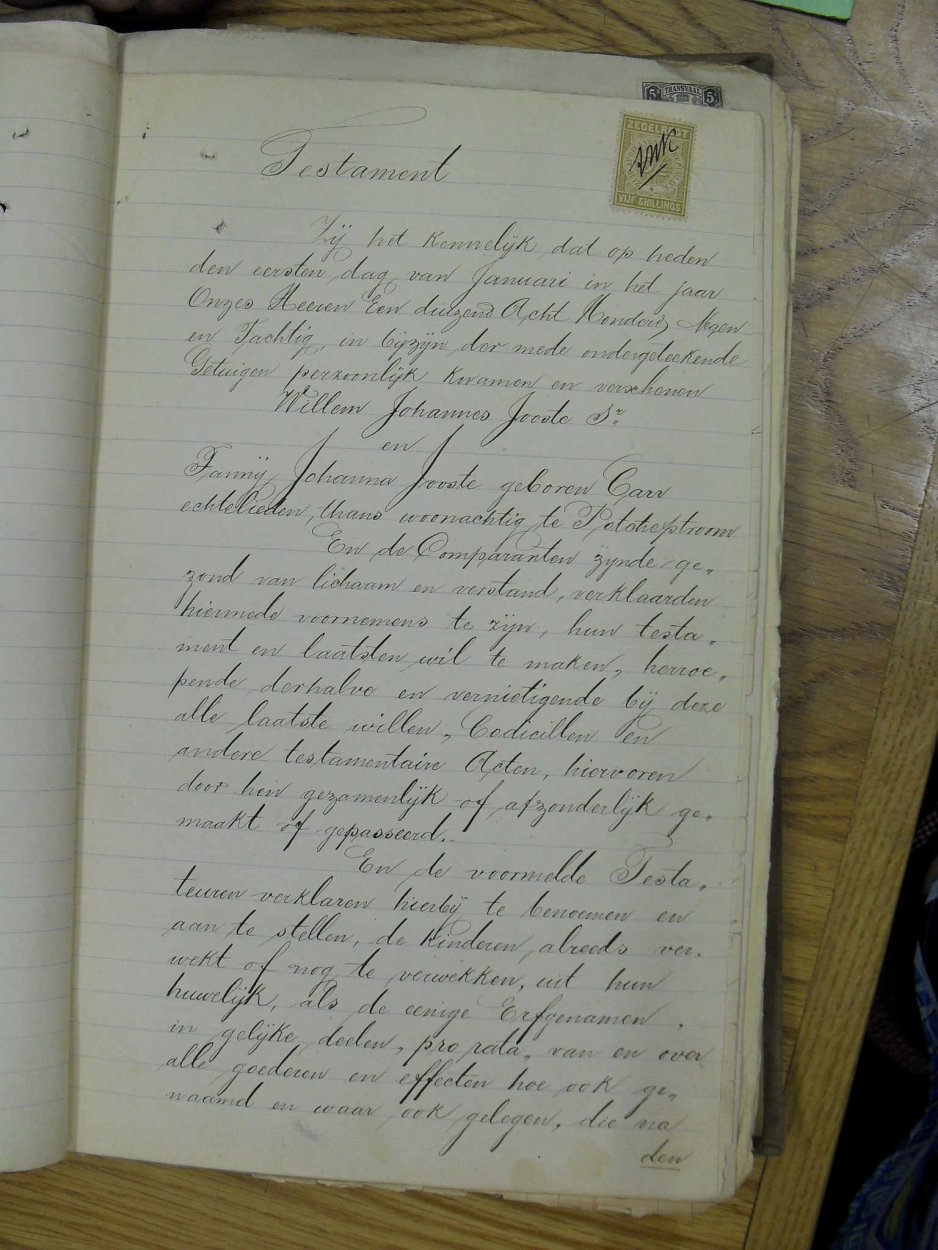 TRANSVAAL
5 5
ZEGELRECHT
VIJF SHILLINGS
Testament
Zij het kennelijk dat op heden
den eersten dag van Januari in het jaar
Onzes Heeren Een duizend Acht Honderd Negen
en Tachtig, in bijzijn der mede ondergeteekende
Getuigen persoonlijk kwamen en verschenen
Willem Johannes Jooste Sr.
en
Fannij Johanna Jooste geboren Carr
echtelieden, thans woonachtig te Potchefstroom
En de Comparanten zynde ge„
zond van lichaam en verstand, verklaarden
hiermede voornemens te zijn, hun testa„
ment en laatsten wil te maken, herroe„
pende derhalve en vernietigende bij deze
alle laatste willen, Codicillen en
andere testamentaire Acten, hiervoren
door hen gezamenlijk of afzonderlijk ge„
maakt of gepasseerd.
En de voormelde Testa„
teuren verklaren hierbij te benoemen en
aan te stellen, de kinderen, alreeds ver„
wekt of nog te verwekken, uit hun
huwelijk, als de eenige Erfgenamen,
in gelijke deelen, pro rata, van en over
alle goederen en effecten hoe ook ge„
naamd en waar ook gelegen, die na
den